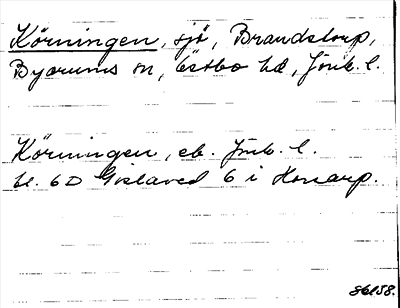 Körningen, sjö, Brandstorp,
Byarums sn, Östbo hd, Jönk. l.
Körningen, ek. Jönk. l.
bl. 6D Gislaved 6 i Horarp.
86158.